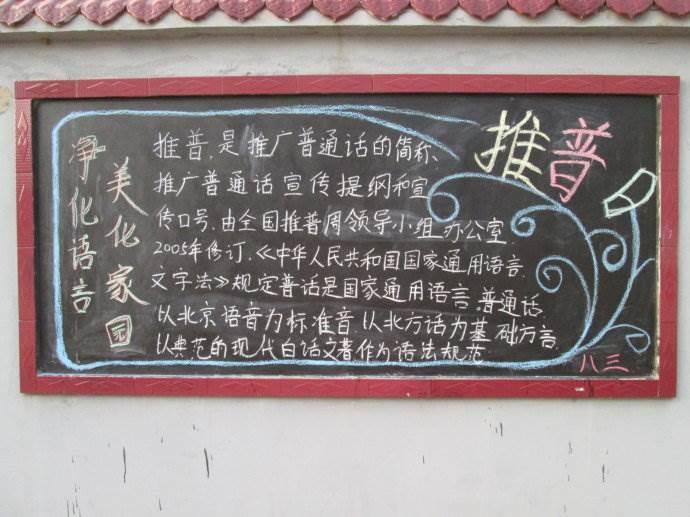 推普
净化语言
美化家园
推普,是推广普通话的简称、
推广普通话宣传提纲和宣
传口号.由全国推普周领导小组办公室.
2005年修订.《中华人民共和国国家通用语言.
文字法》规定普话是国家通用语言.普通话.
以北京语音为标准音.以北方话为基础方言.
以典范的现代白话文著作为语法规范
八三